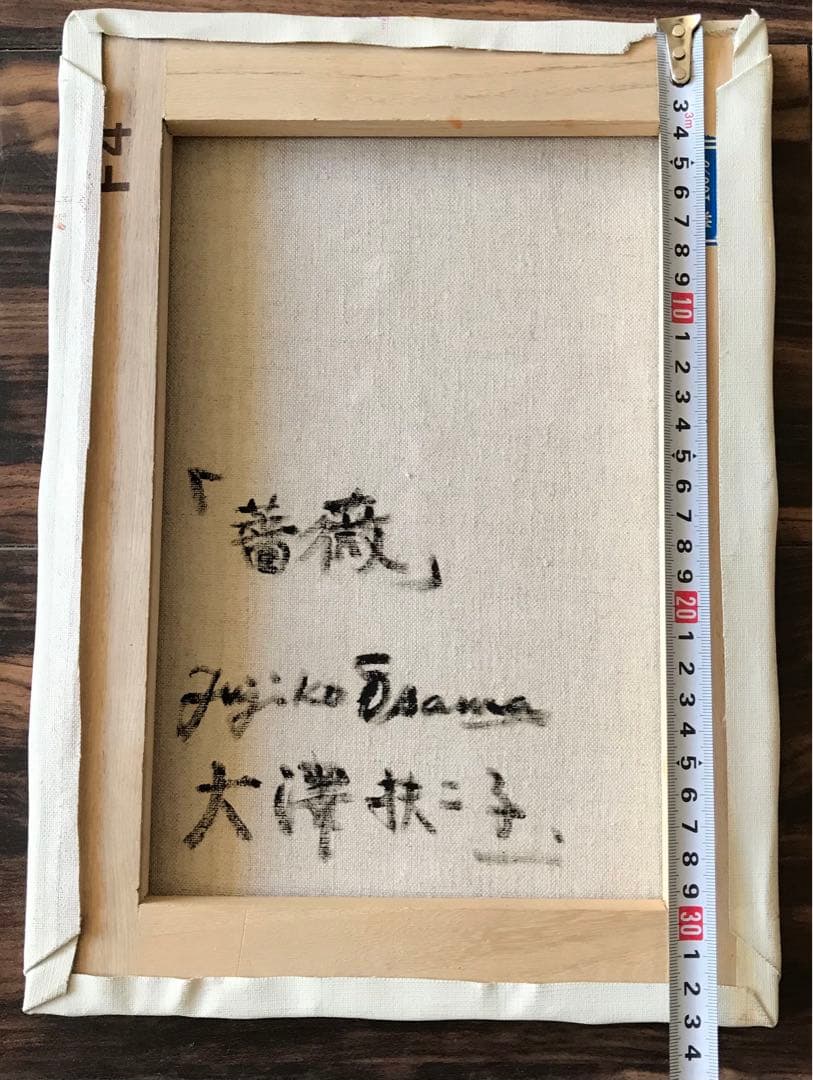 F4
「薔薇」
Fujiko Ōsawa
大澤扶二子.
3m
3 4 5 6 7 8 9 10 1 2 3 4 5 6 7 8 9 20 1 2 3 4 5 6 7 8 9 30 1 2 3 4